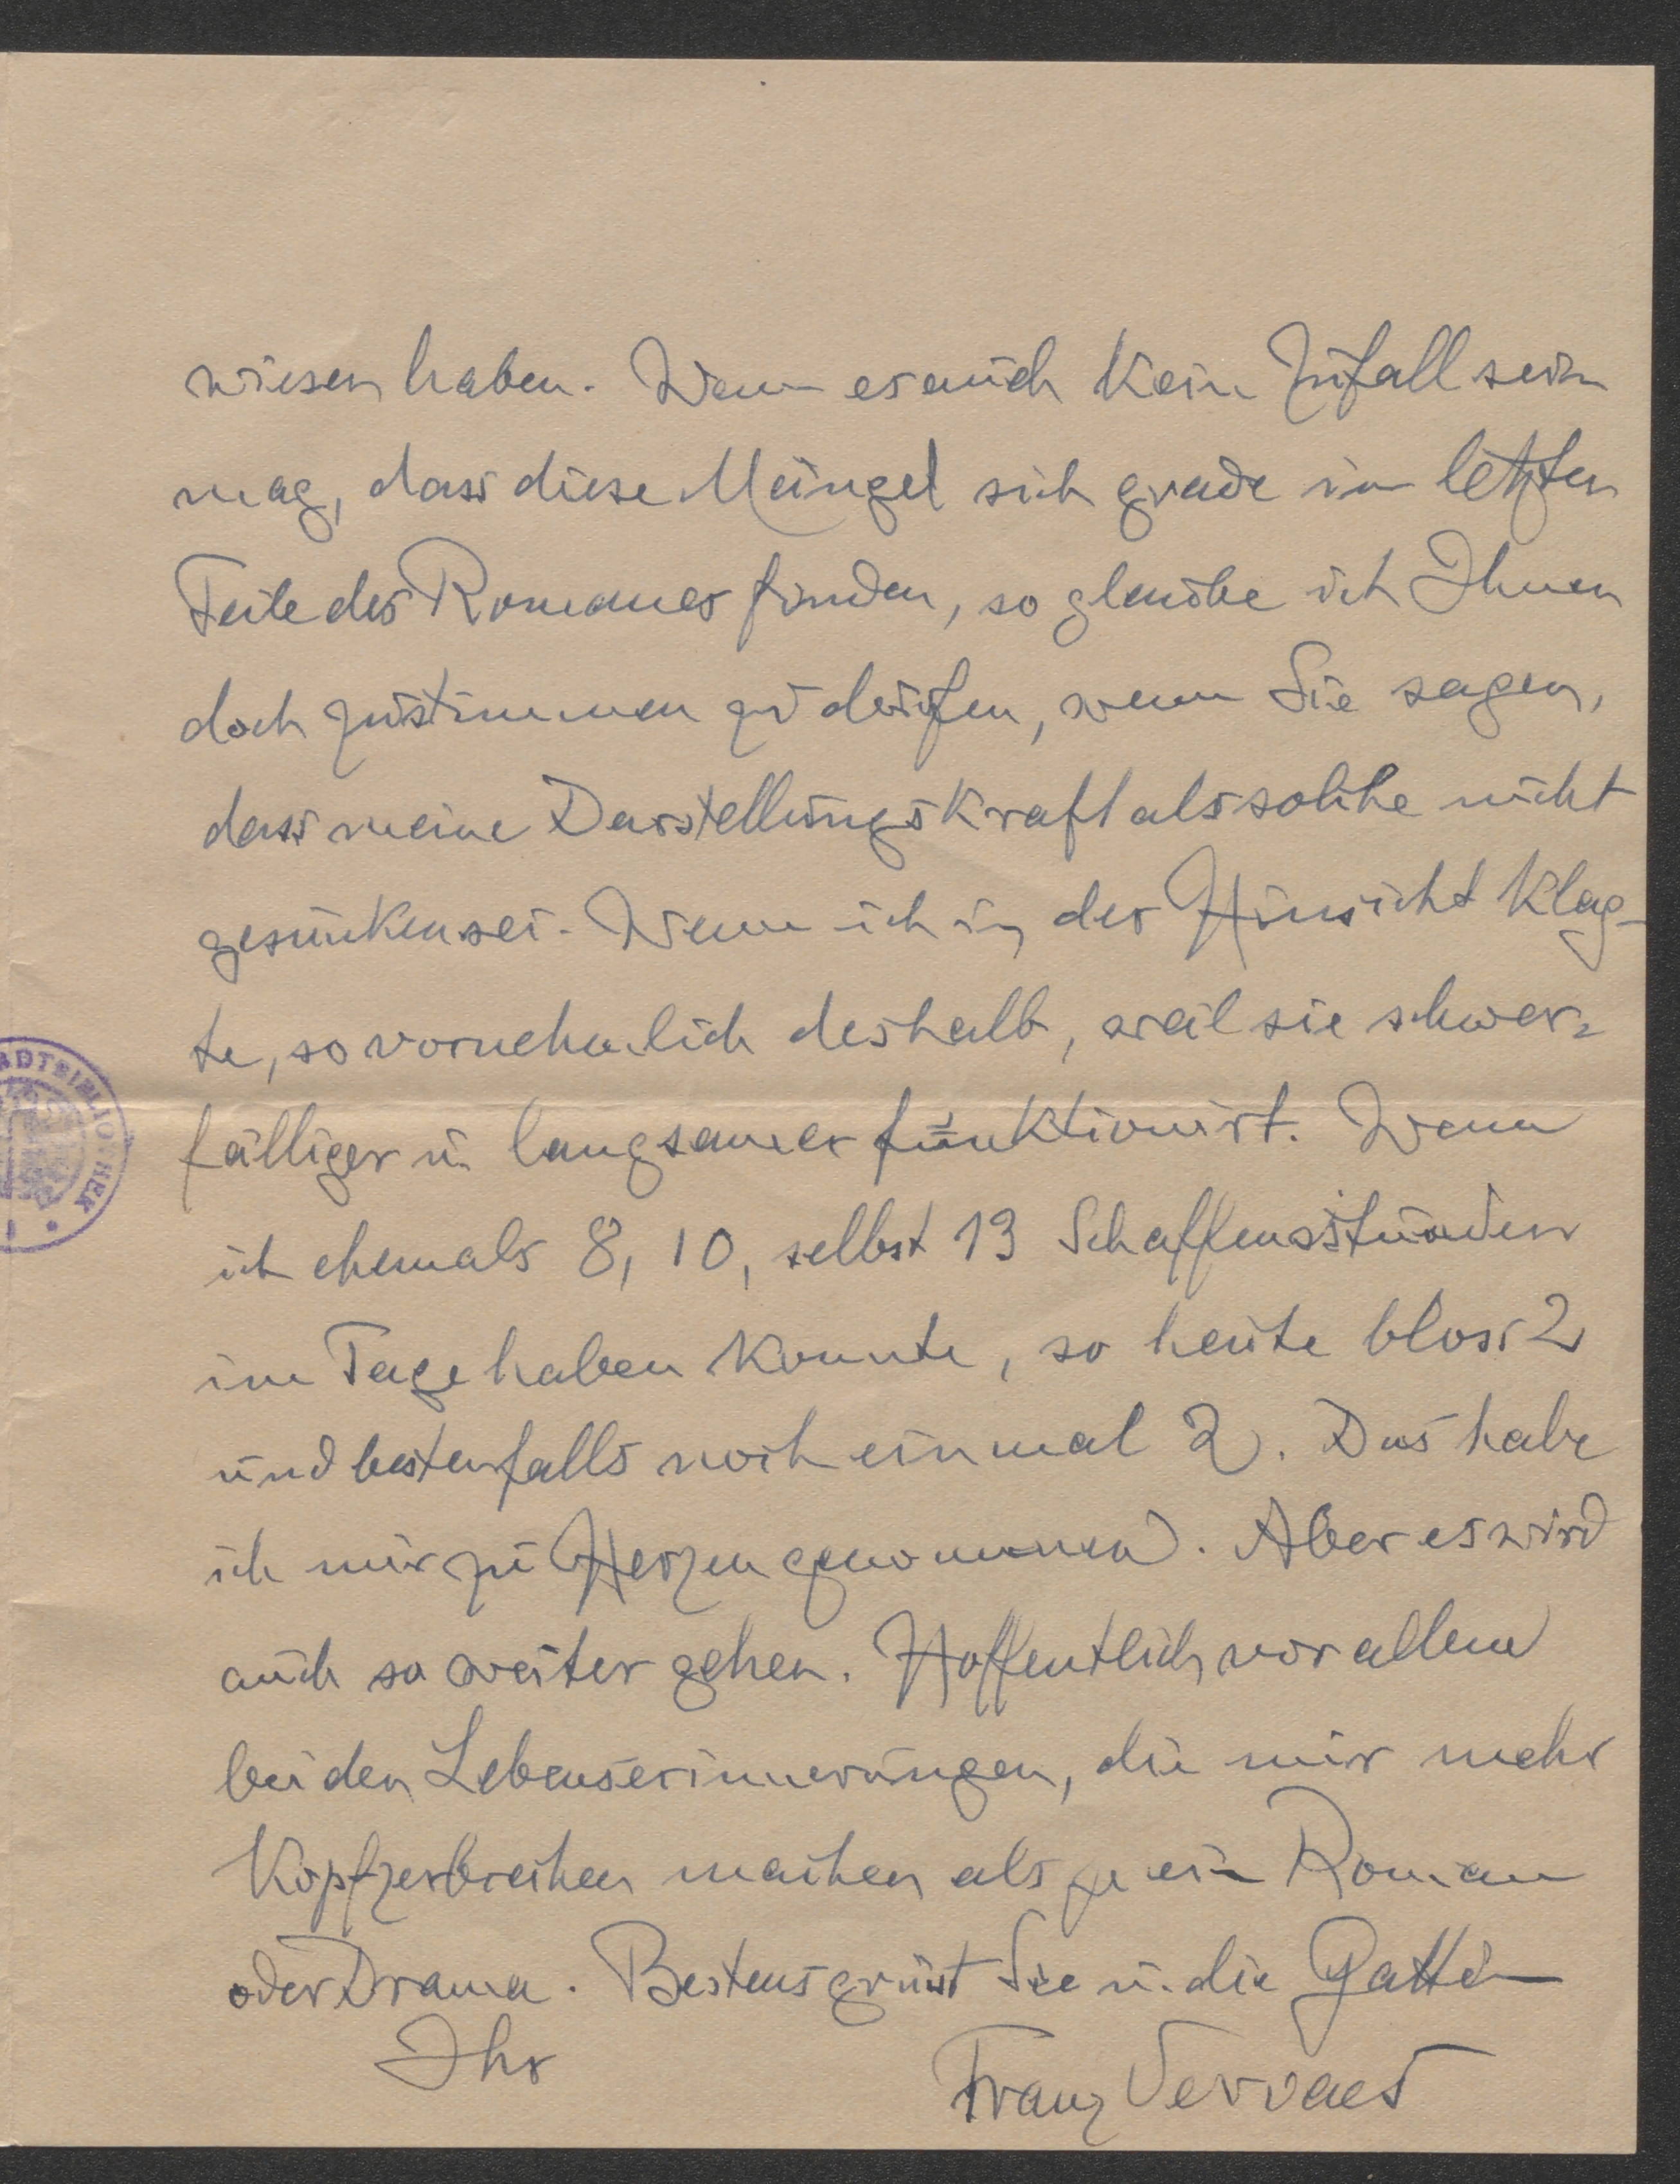 wiesen haben. Wenn es auch kein Zufall sein
mag, dass diese Mängel sich grade im letzten
Teile des Romanes finden, so glaube ich Ihnen
doch zustimmen zu dürfen, wenn Sie sagen,
dass meine Darstellungskraft als solche nicht
gesunken sei. Wenn ich in der Hinsicht klag-
te, so vornehmlich deshalb, weil sie schwer-
fälliger u. langsamer funktionirt. Wenn
ich ehemals 8, 10, selbst 13 Schaffensstunden
im Tage haben konnte, so heute bloss 2
und bestenfalls noch einmal 2. Das habe
ich mir zu Herzen genommen. Aber es wird
auch so weiter gehen. Hoffentlich vor allem
bei den Lebenserinnerungen, die mir mehr
Kopfzerbrechen machen als je ein Roman
oder Drama. Bestens grüsst Sie u. die Gattin
Ihr
Franz Servaes
ADTBIBLIOTHEK